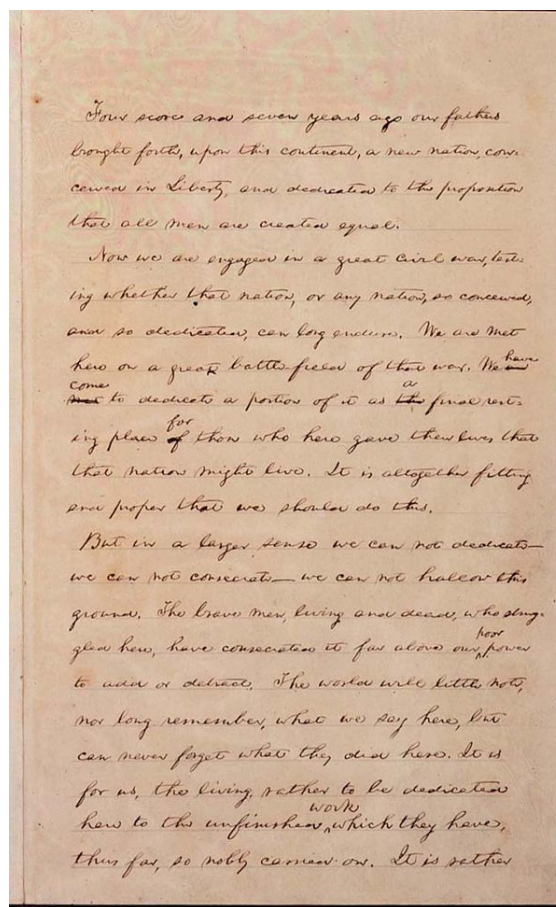 Four score and seven years ago our fathers
brought forth, upon this continent, a new nation, con-
ceived in Liberty, and dedicated to the proposition
that all men are created equal.
Now we are engaged in a great civil war, test-
ing whether that nation, or any nation, so conceived,
and so dedicated, can long endure. We are met
here on a great battle-field of that war. We have are
come met to dedicate a portion of it as a the final rest-
ing place for of those who here gave their lives that
that nation might live. It is altogether fitting
and proper that we should do this.
But in a larger sense we can not dedicate—
we can not consecrate— we can not hallow this
ground. The brave men, living and dead, who strug-
gled here, have consecrated it far above our poor power
to add or detract. The world will little note,
nor long remember, what we say here, but
can never forget what they did here. It is
for us, the living, rather to be dedicated
here to the unfinished work which they have,
thus far, so nobly carried on. It is rather